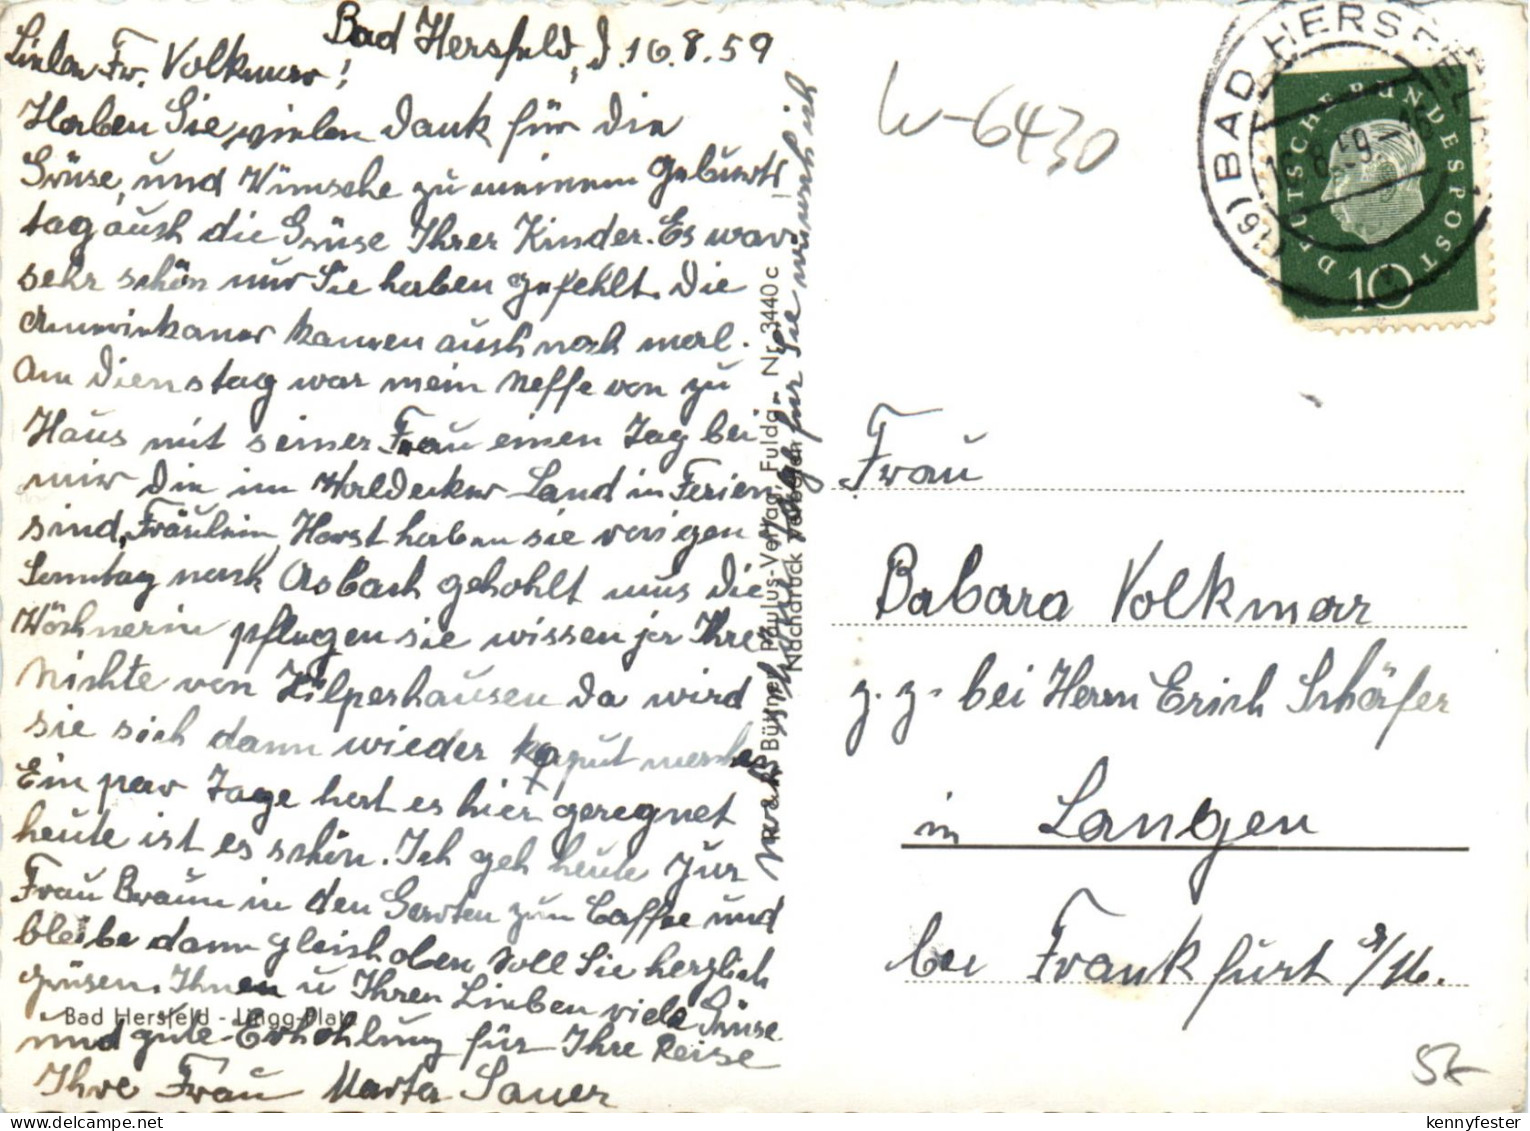 Bad Hersfeld, d. 16.8.59
Lieben Fr. Volkmar!
Haben Sie vielen Dank für die
Grüse, und Wünsche zu meinem Geburts
tag aush die Grüse Ihrer Kinder. Es war
sehr schön nur Sie haben gefehlt. Die
Amerikaner kamen auch noch mal.
Am Dienstag war mein Neffe von zu
Haus mit seiner Frau einen Tag bei
mir Die im Waldecker Land in Ferien
sind, Fräulein Horst haben sie vorigen
Sonntag nach Asbach gehohlt mus die
Wöchnerin pflegen sie wissen ja Ihre
Nichte von Hilpershausen da wird
sie sich dann wieder kaput machen
Ein par Tage hat es hier geregnet
heute ist es schön. Ich geh heute zur
Frau Braun in den Garten zum Caffee und
bleibe dann gleich oben soll Sie herzlich
grüsen. Ihnen u Ihren Lieben viele Grüse
und gute Erhohlung für Ihre Reise
Ihre Frau Marta Sauer
Bad Hersfeld - Lingg-Platz
noch schöne Tage für Sie wünsch ich
Büttner, Paulus-Verlag, Fulda - Nr. 3440 c
Nachdruck verboten
W-6430
(16) BAD HERSFELD
16.8.59.-16
DEUTSCHE BUNDESPOST
10
Frau
Babara Volkmar
z. z. bei Herrn Erich Schäfer
in Langen
bei Frankfurt a/M.
kennyfester